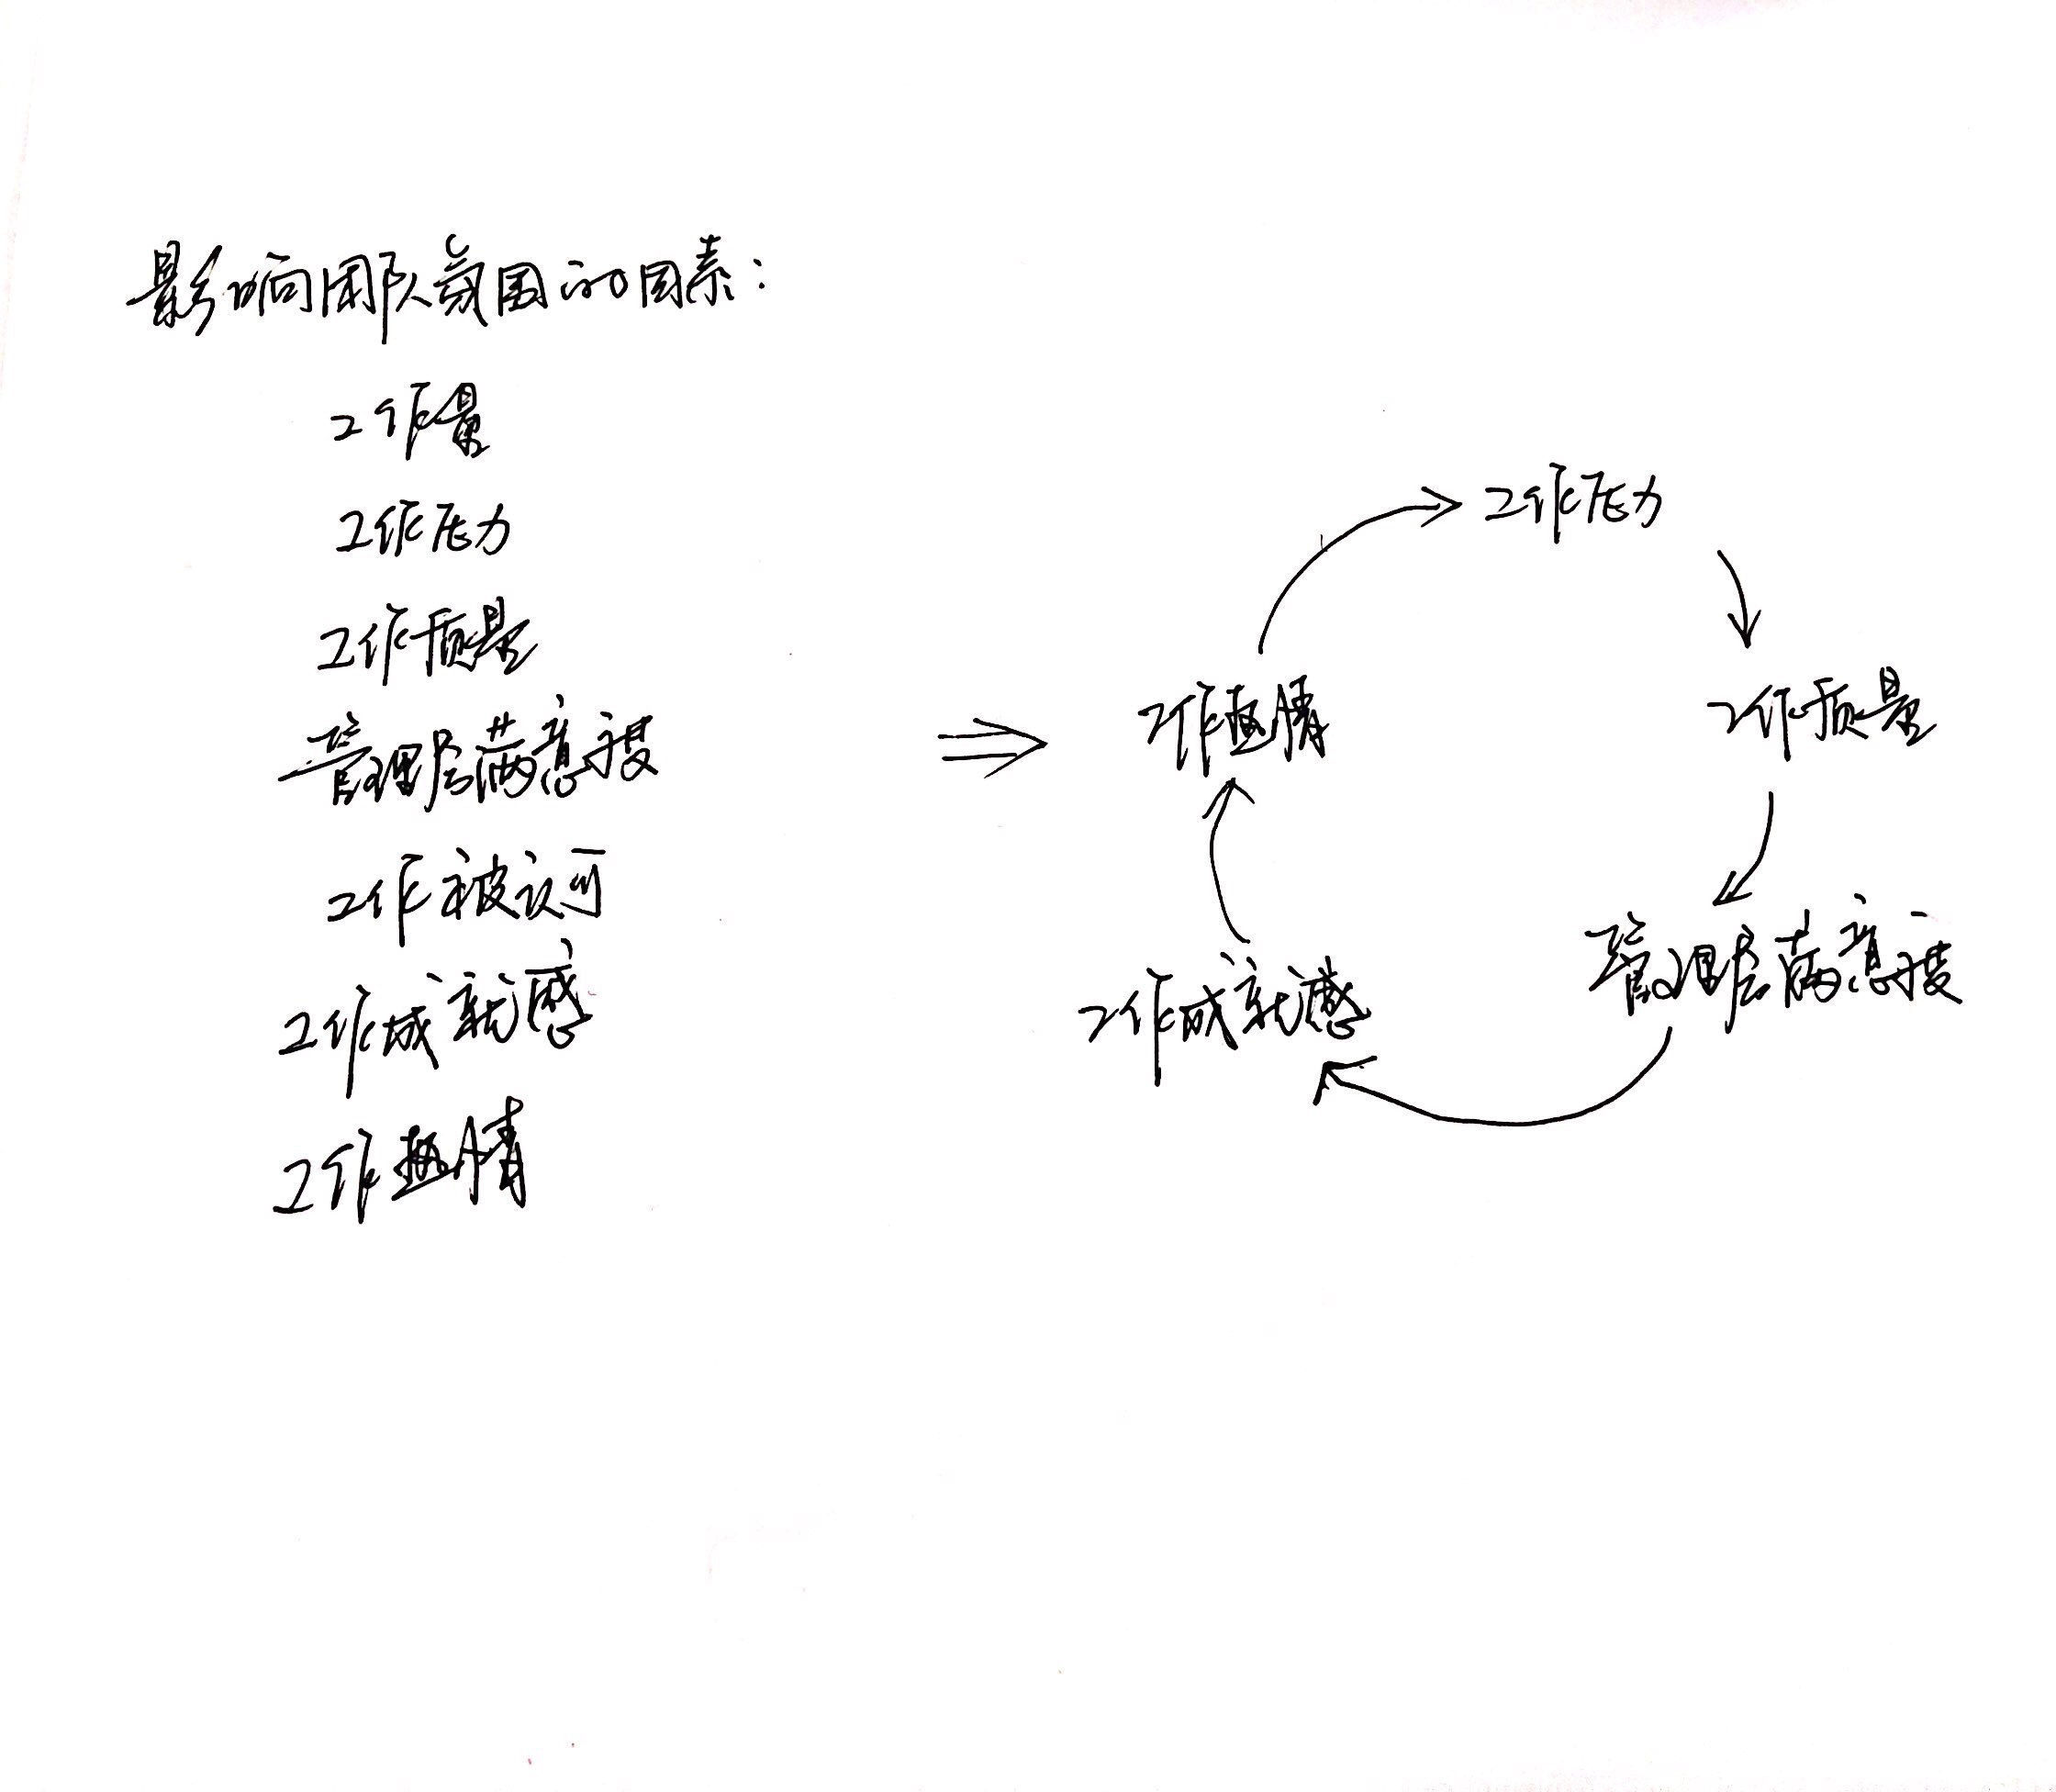 影响团队氛围的因素：
工作量
工作压力
工作质量
管理层满意度
工作被认可
工作成就感
工作热情
工作压力
工作质量
管理层满意度
工作成就感
工作热情